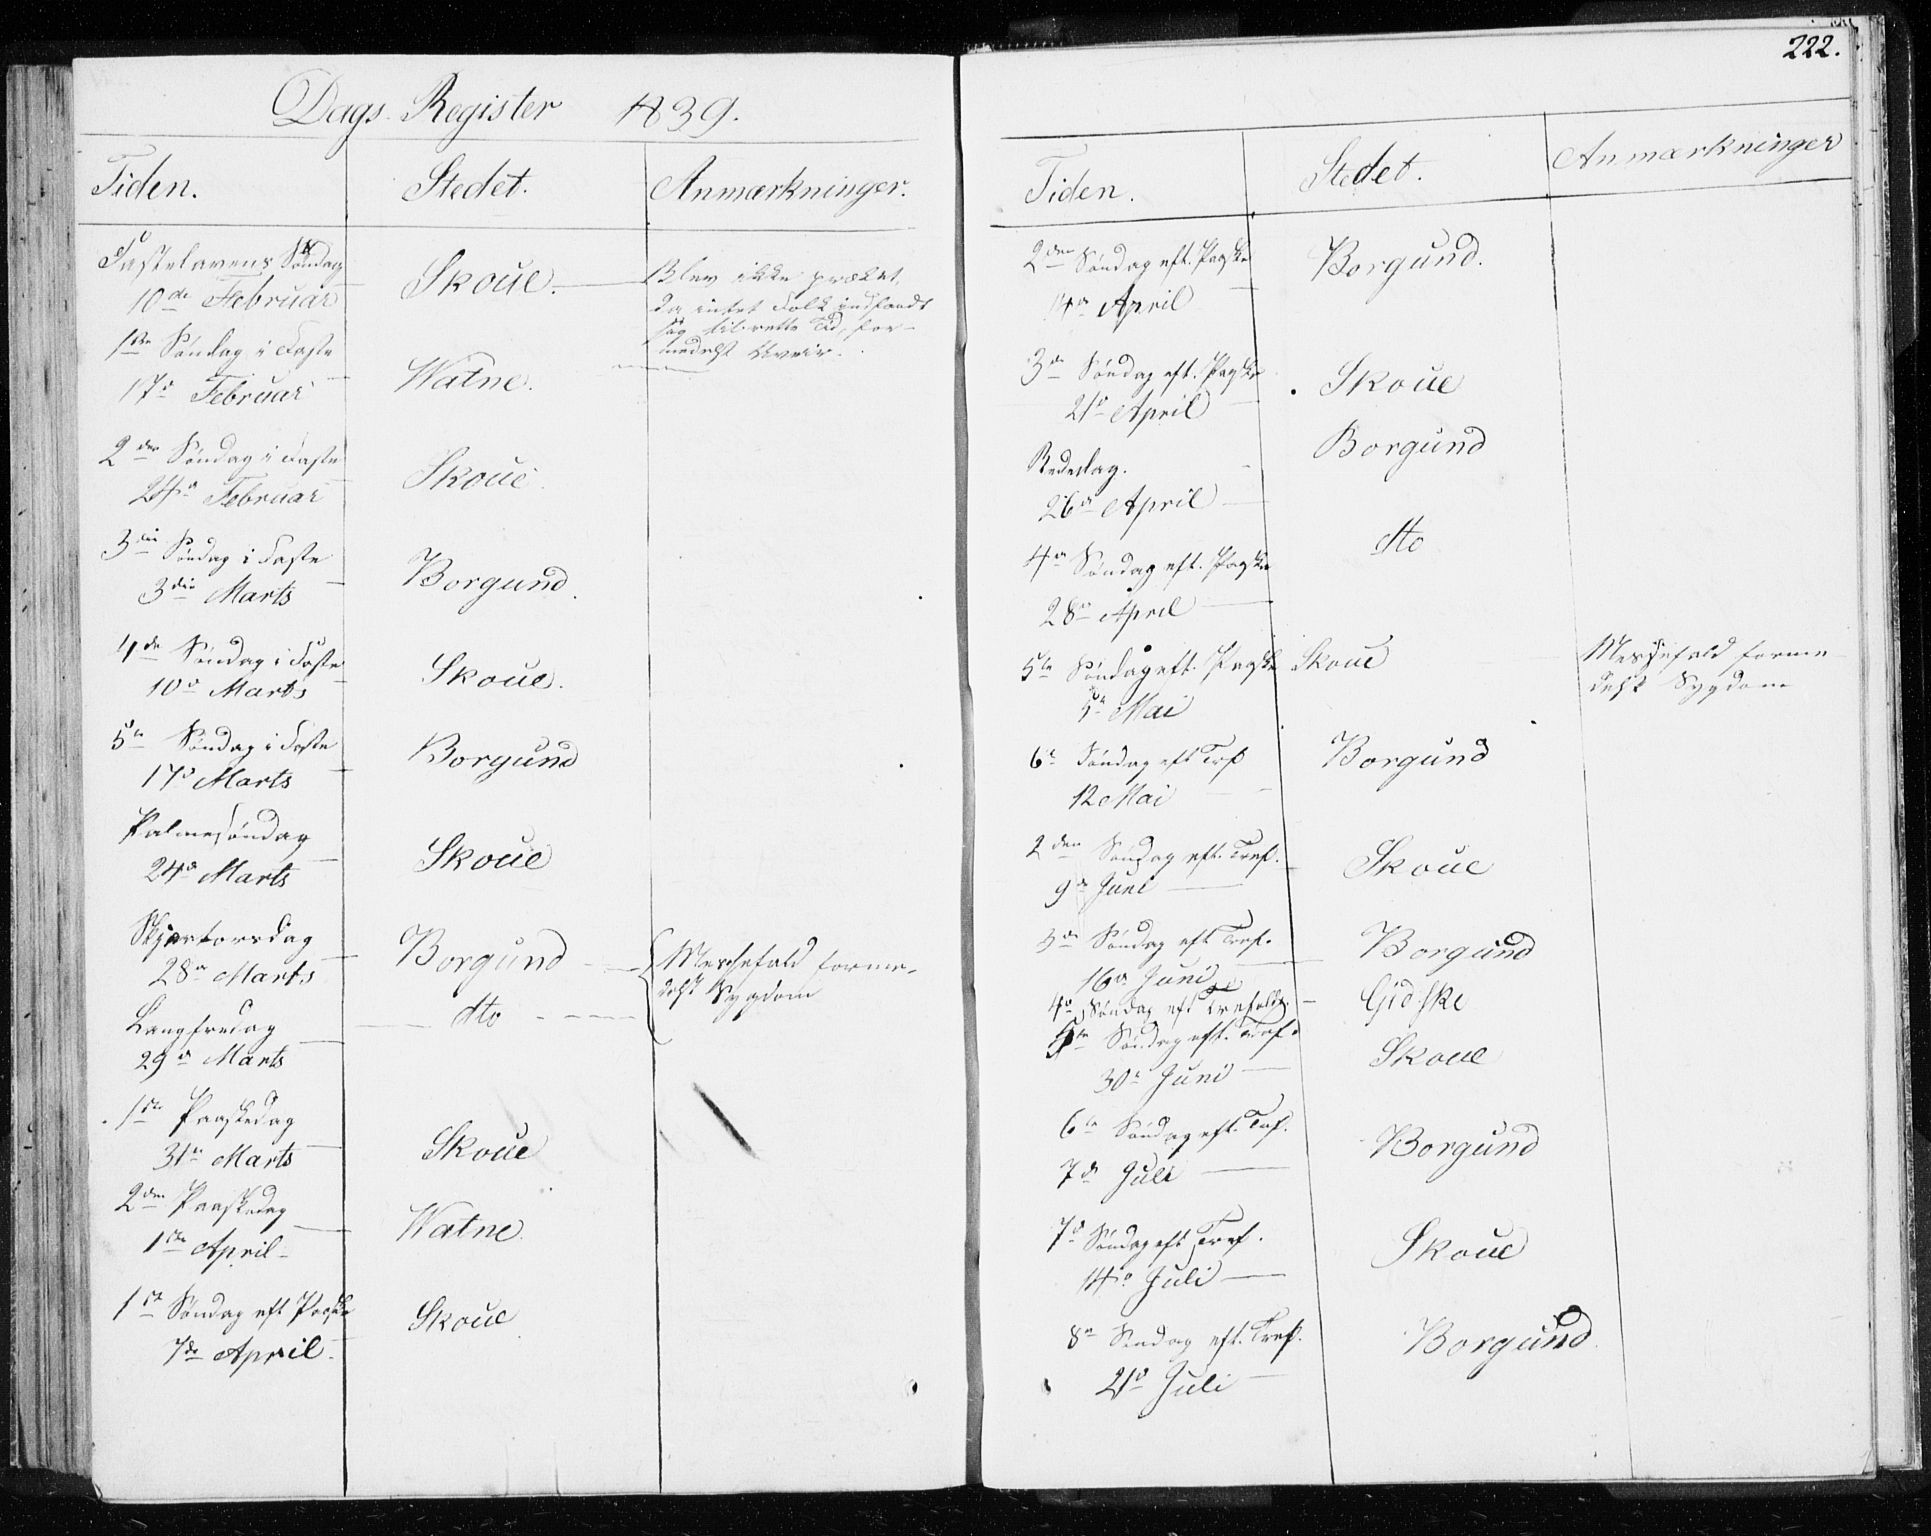 Dags Register 1839.
Tiden. Stedet. Anmærkninger.
Fastelavens Søndag
10de Februar Skoue. Blev ikke prædket,
da intet Folk indfandt
sig til rette Tid, for-
medelst Uveir.
1ste Søndag i Faste
17d Februar Watne.
2den Søndag i Faste
24d Februar Skoue.
3die Søndag i Faste
3die Marts Borgund.
4de Søndag i Faste
10d Marts Skoue.
5te Søndag i Faste
17d Marts Borgund
Palmesøndag
24d Marts Skoue
Skjærtorsdag
28d Marts Borgund Messefald forme-
delst Sygdom
Langfredag
29d Marts dto
1ste Paaskedag
31te Marts Skoue
2den Paaskedag
1ste April Watne.
1ste Søndag eft Paaske
7de April Skoue
222.
Tiden. Stedet. Anmærkninger
2den Søndag eft. Paaske
14d April Borgund.
3de Søndag eft. Paaske
21d April Skoue
Bededag.
26d April Borgund
4d Søndag eft. Paaske
28d April dto
5te Søndag eft. Paaske Skoue Messefald forme-
delst Sygdom
5te Mai
6te Søndag eft
12 Mai Borgund
2den Søndag eft. Tref.
9d Juni Skoue
3de Søndag eft Tref.
16d Juni Borgund
4d Søndag eft Trefoldg. Gidske
5te Søndag eft. Tref.
30te Juni Skoue
6te Søndag eft. Tref.
7d Juli Borgund
7d Søndag eft Tref.
14d Juli Skoue
8d Søndag eft. Tref.
21d Juli Borgund.